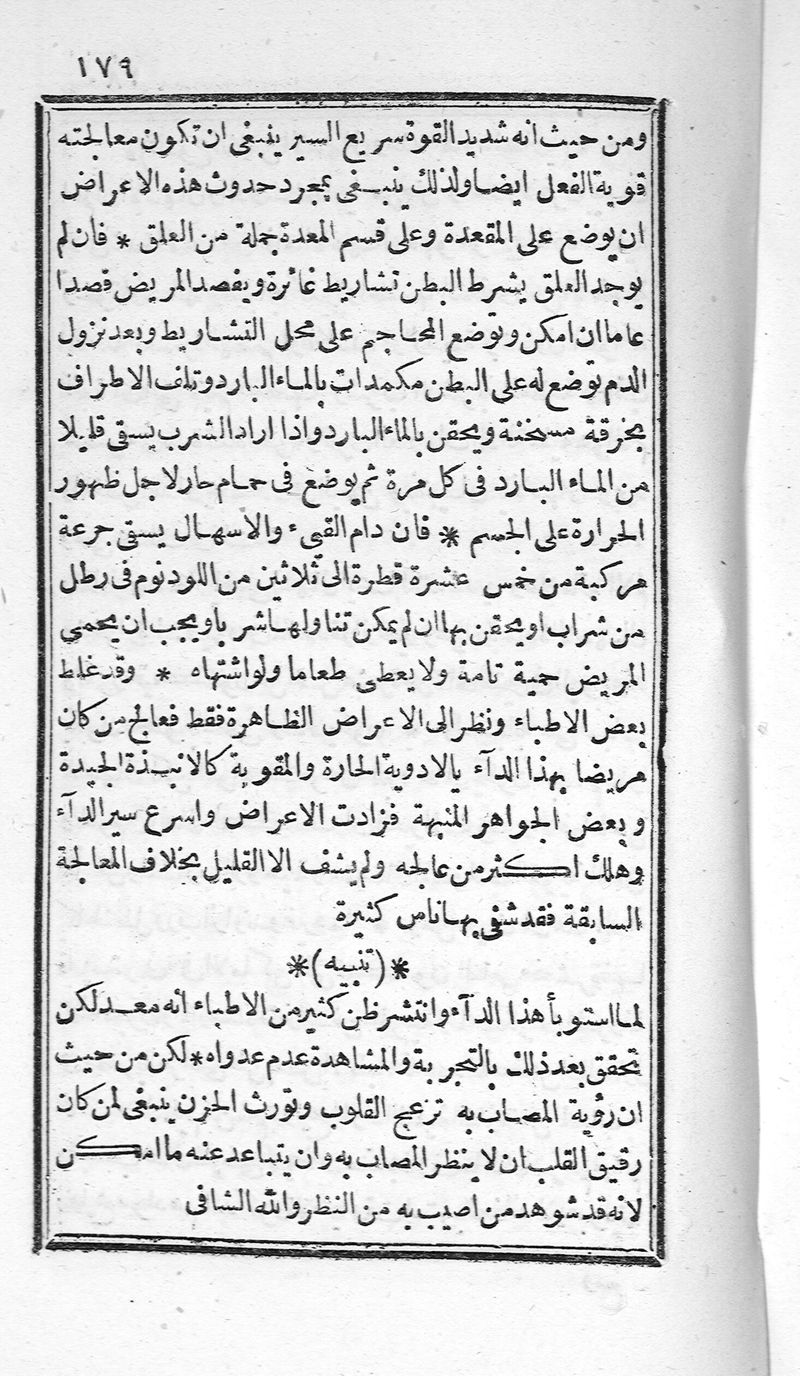 ١٧٩
ومن حيث انه شديد القوة سريع السير ينبغى ان تكون معالجته
قوية الفعل ايضا ولذلك ينبغى بمجرد حدوث هذه الاعراض
ان يوضع على المقعدة وعلى قسم المعدة جملة من العلق * فان لم
يوجد العلق يشرط البطن تشاريط غائرة ويفصد المريض فصدا
عاما ان امكن وتوضع المحاجم على محل التشاريط وبعد نزول
الدم توضع له على البطن مكمدات بالماء البارد وتلف الاطراف
بخرقة مسخنة ويحقن بالماء البارد واذا اراد الشرب يسقى قليلا
من الماء البارد فى كل مرة ثم يوضع فى حمام حار لاجل ظهور
الحرارة على الجسم * فان دام القيىء والاسهال يسقى جرعة
مركبة من خمس عشرة قطرة الى ثلاثين من اللودنوم فى رطل
من شراب او يحقن بها ان لم يمكن تناولها شربا ويجب ان يحمى
المريض حمية تامة ولا يعطى طعاما ولو اشتهاه * وقد غلط
بعض الاطباء ونظر الى الاعراض الظاهرة فقط فعالج من كان
مريضا بهذا الدآء بالادوية الحارة والمقوية كالانبذة الجيدة
وبعض الجواهر المنبهة فزادت الاعراض واسرع سير الدآء
وهلك اكثر من عالجه ولم يشف الا القليل بخلاف المعالجة
السابقة فقد شفى بها ناس كثيرة
*(تنبيه)*
لما استوبأ هذا الدآء وانتشر ظن كثير من الاطباء انه معد لكن
تحقق بعد ذلك بالتجربة والمشاهدة عدم عدواه * لكن من حيث
ان رؤية المصاب به تزعج القلوب وتورث الحزن ينبغى لمن كان
رقيق القلب ان لا ينظر المصاب به وان يتباعد عنه ما امكن
لانه قد شوهد من اصيب به من النظر والله الشافى